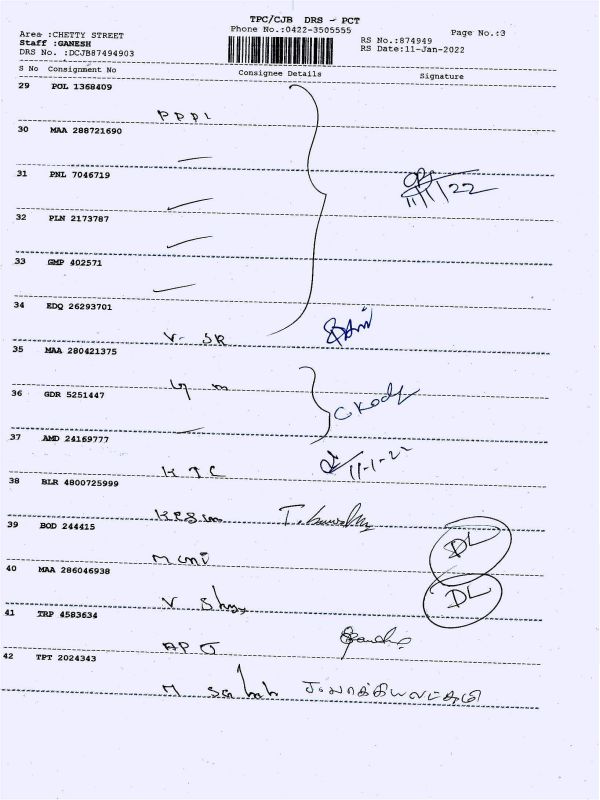 TPC/CJB DRS - PCT
Area :CHETTY STREET Phone No.:0422-3505555 Page No.:3
Staff :GANESH RS No.:874949
DRS No. :DCJB87494903 RS Date:11-Jan-2022
S No Consignment No Consignee Details Signature
29 POL 1368409
PPPL
30 MAA 288721690
31 PNL 7046719
11/1/22
32 PLN 2173787
33 GMP 402571
34 EDQ 26293701
V- SR
35 MAA 280421375
36 GDR 5251447
37 AMD 24169777
KTC 11-1-22
38 BLR 4800725999
39 BOD 244415
DL
40 MAA 286046938
DL
41 TRP 4583634
42 TPT 2024343